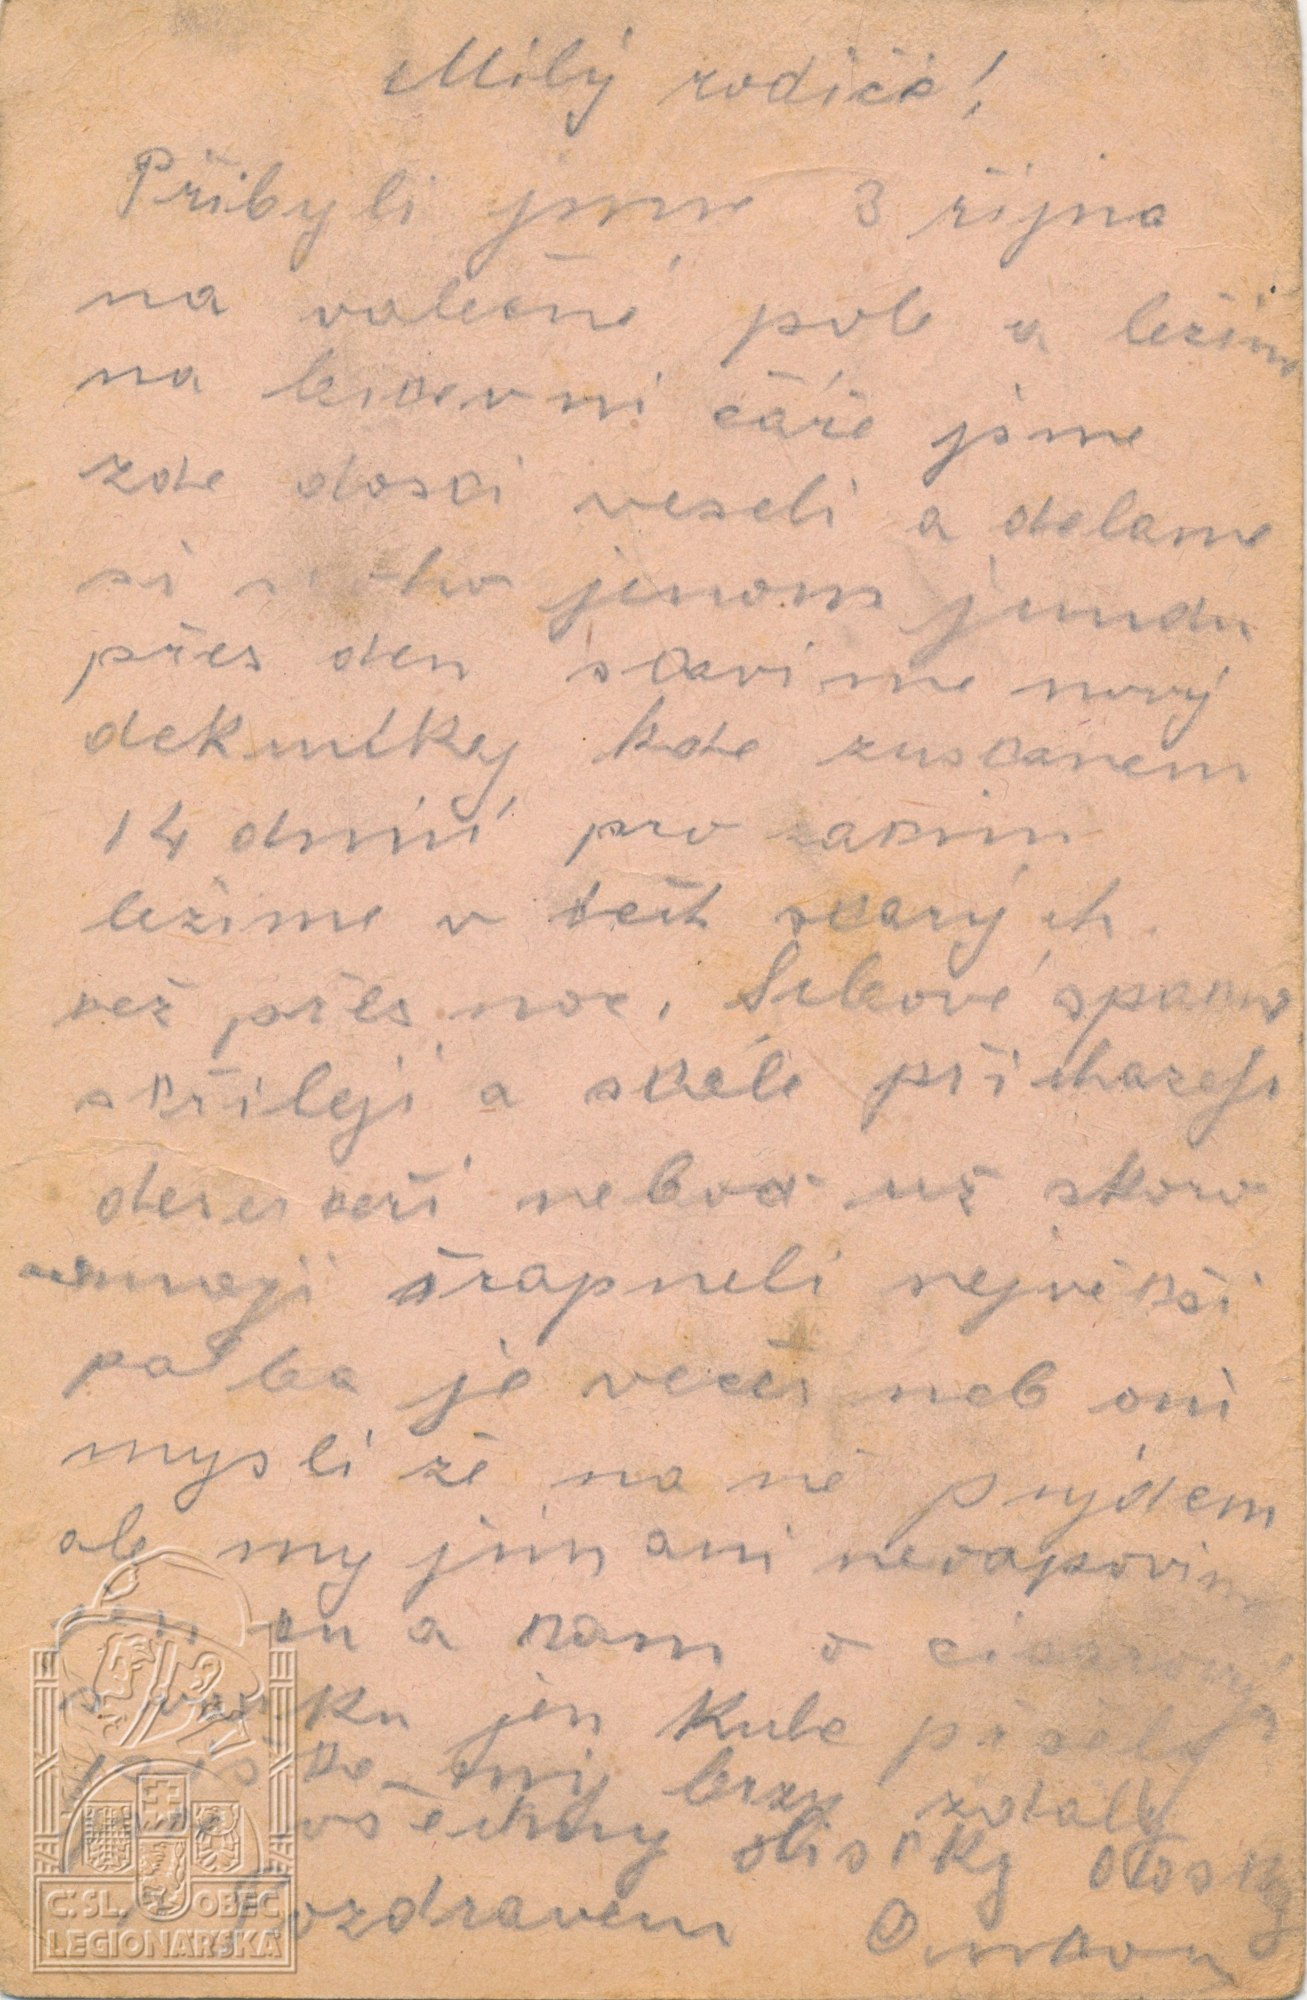 Milý rodiče!
Přibyli jsme 3 řijna
na valečné pole a ležíme
na bitevni čáře jsme
zde dosti veseli a delame
si z toho jenom jundu
přes den stavime nový
dekuňky kde zustanem
14 dnní pro zatim
ležime v těch starých
též přes noc. Srbové spatne
střileji a stále přichazeji
deserteři neboď už skoro
nemaji šrapneli největši
palba je večer neb oni
mysli že na ně pujdem
ale my jim ani neodapovime
jen tu a tam
jen kule
brzy zdali
všechny dlistky
Pozdravem
C.SL. OBEC
LEGIONÁŘSKÁ